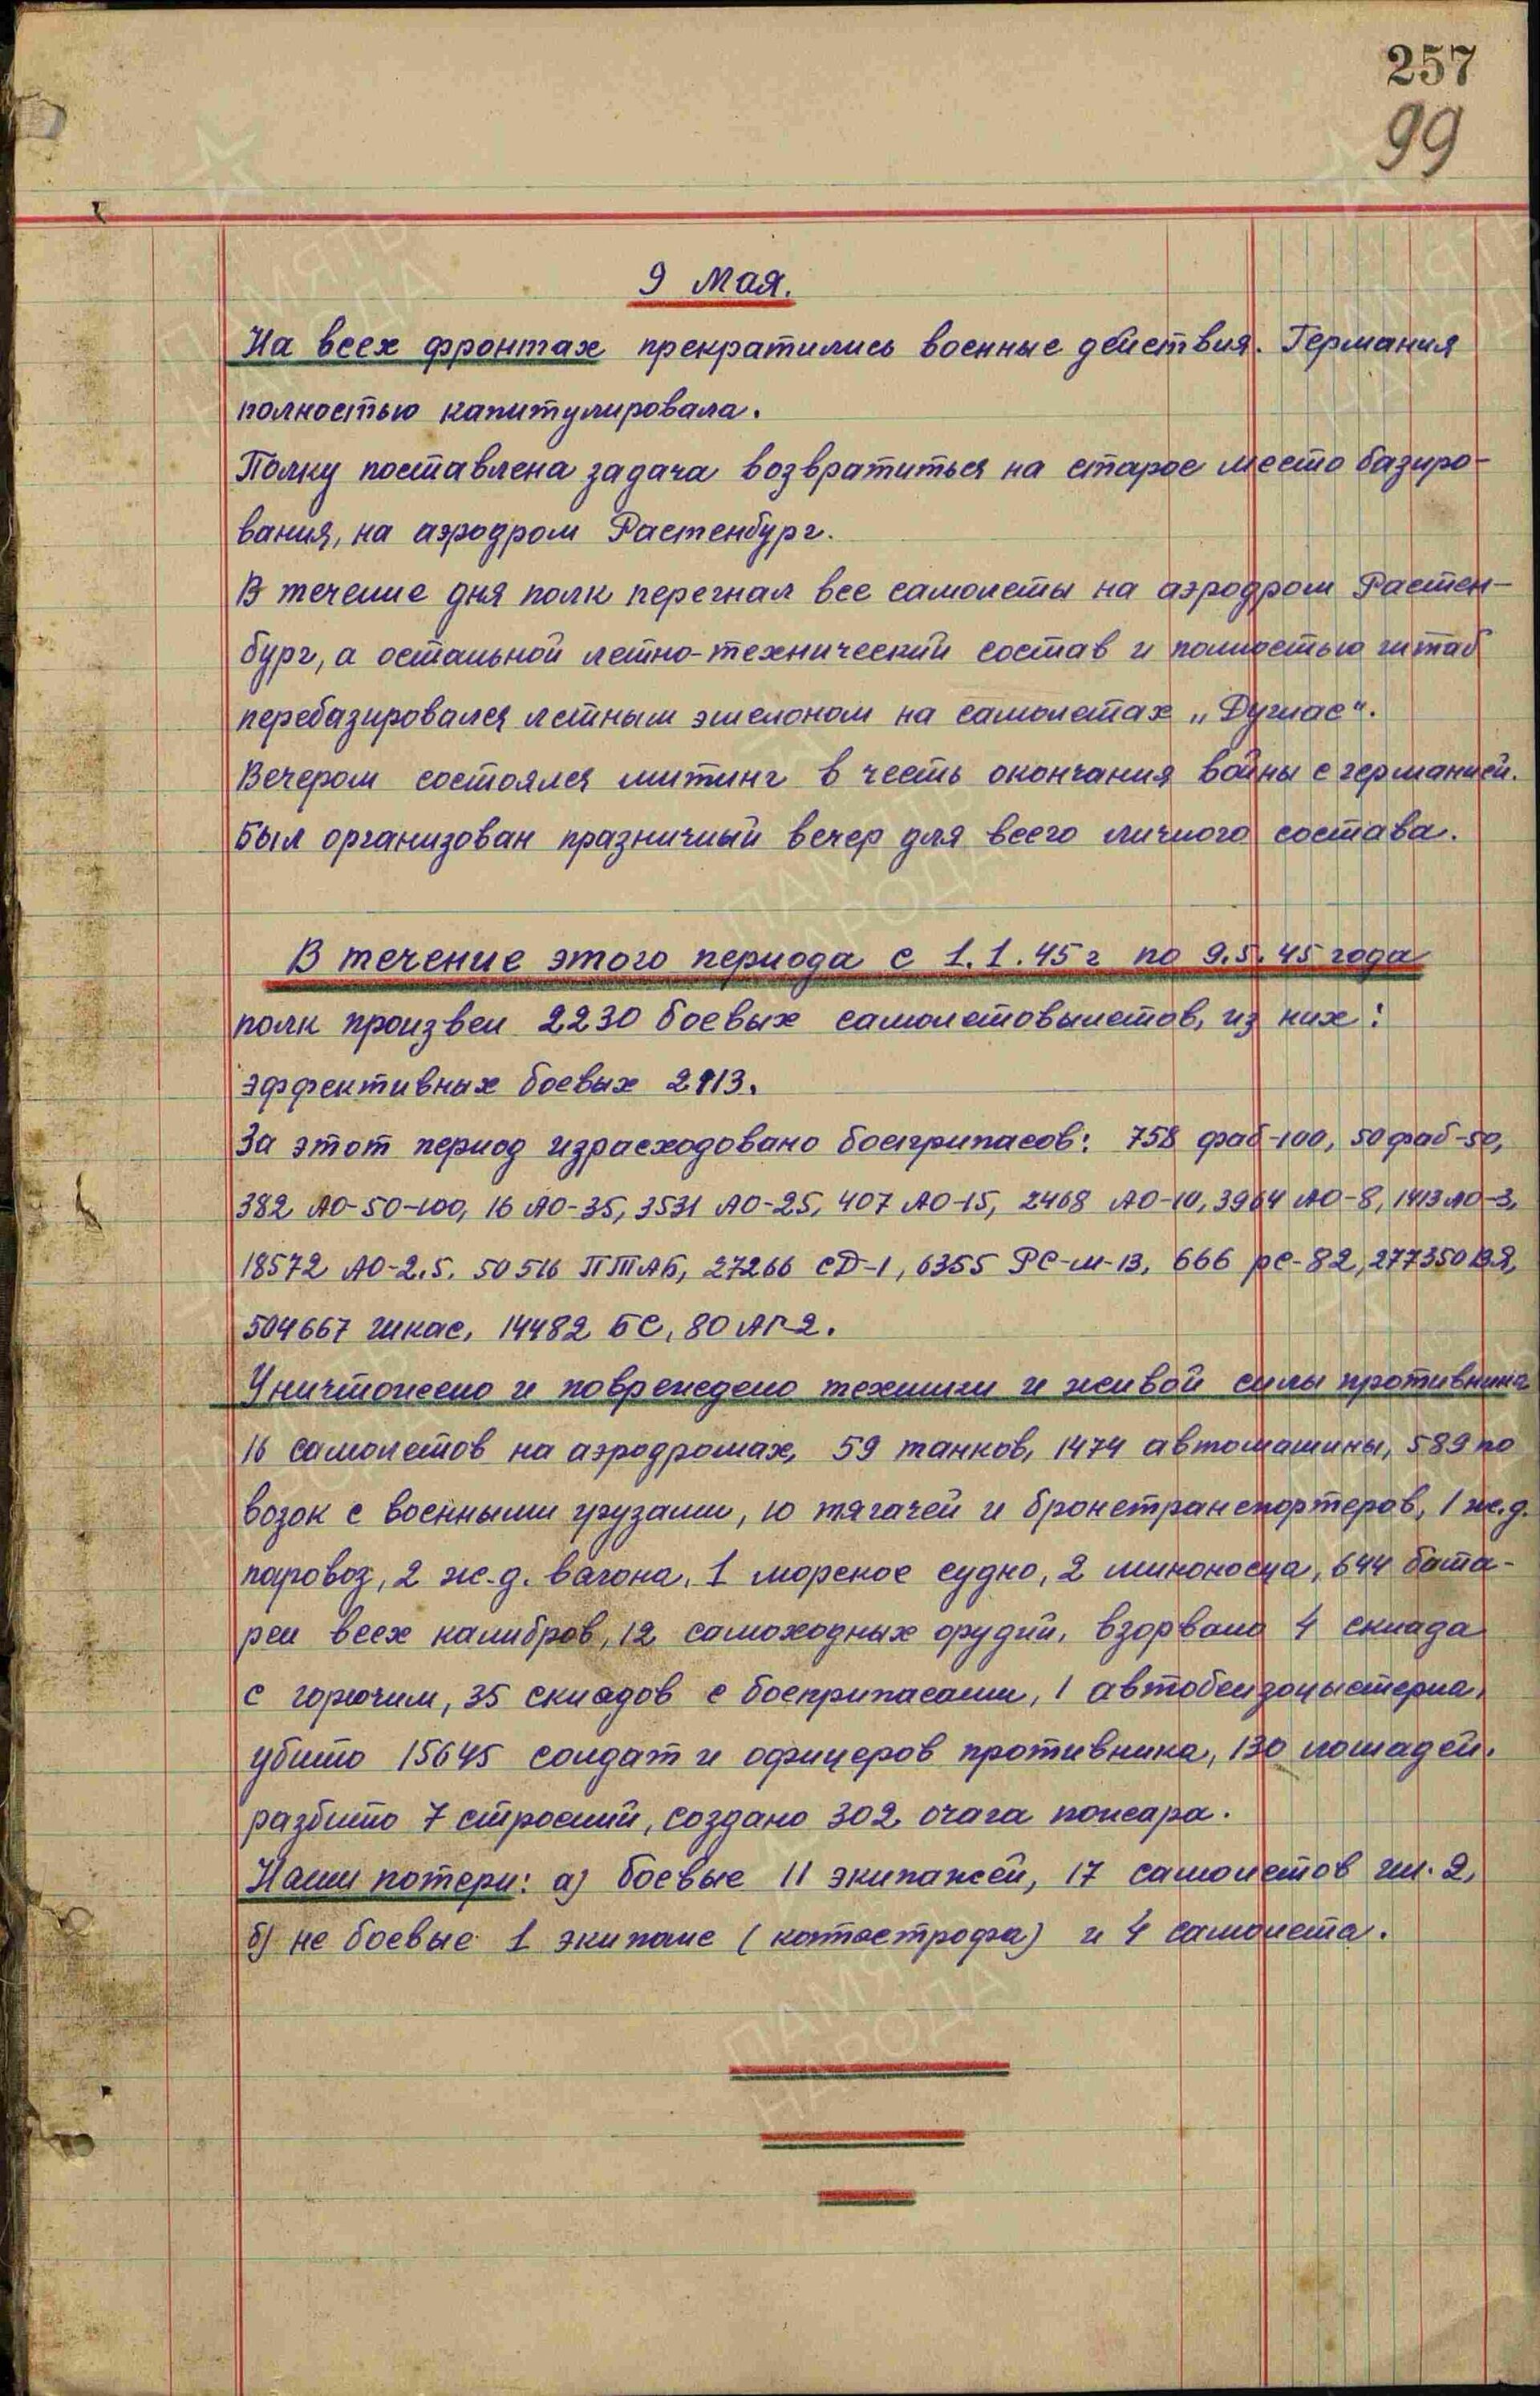 257
99
9 Мая.
На всех фронтах прекратились военные действия. Германия
полностью капитулировала.
Полку поставлена задача возвратиться на старое место базиро-
вания, на аэродром Растенбург.
В течение дня полк перегнал все самолеты на аэродром Растен-
бург, а остальной летно-технический состав и полностью штаб
перебазировался летным эшелоном на самолетах „Дуглас“.
Вечером состоялся митинг в честь окончания войны с германией.
Был организован празничный вечер для всего личного состава.
В течение этого периода с 1.1.45 г по 9.5.45 года
полк произвел 2230 боевых самолетовылетов, из них:
эффективных боевых 2113.
За этот период израсходовано боеприпасов: 758 фаб-100, 50 фаб-50,
382 АО-50-100, 16 АО-35, 3531 АО-25, 407 АО-15, 2468 АО-10, 3964 АО-8, 1413 АО-3,
18572 АО-2.5. 50516 ПТАБ, 27266 СД-1, 6355 РС-М-13, 666 РС-82, 277350 ВЯ,
504667 Шкас, 14482 БС, 80 АГ-2.
Уничтожено и повреждено техники и живой силы противника
16 самолетов на аэродромах, 59 танков, 1474 автомашины, 589 по
возок с военными грузами, 10 тягачей и бронетранспортеров, 1 ж.д.
паровоз, 2 ж.д. вагона, 1 морское судно, 2 миноносца, 644 бата-
реи всех калибров, 12 самоходных орудий, взорвано 4 склада
с горючим, 35 складов с боеприпасами, 1 автобензоцыстерна,
убито 15645 солдат и офицеров противника, 130 лошадей.
разбито 7 строений, создано 302 очага пожара.
Наши потери: а) боевые 11 экипажей, 17 самолетов ил-2,
б) не боевые 1 экипаж (катастрофа) и 4 самолета.
ПАМЯТЬ
НАРОДА
ПАМЯТЬ
НАРОДА
ПАМЯТЬ
НАРОДА